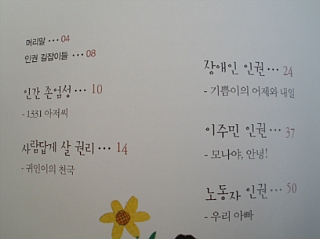 머리말 ··· 04
인권 길잡이들 ··· 08
인간 존엄성 ··· 10
- 1331 아저씨
사람답게 살 권리 ··· 14
- 귀인이의 천국
장애인 인권 ··· 24
- 기쁨이의 어제와 내일
이주민 인권 ··· 37
- 모나야, 안녕!
노동자 인권 ··· 50
- 우리 아빠